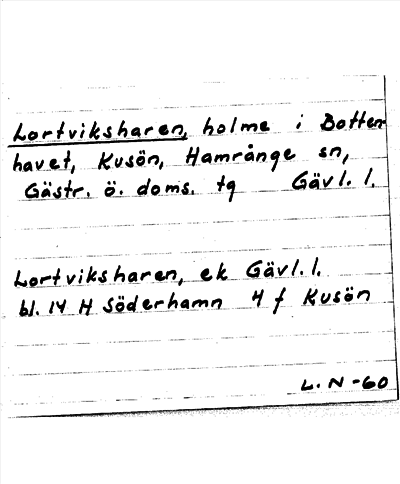 Lortviksharen, holme i Botten-
havet, Kusön, Hamrånge sn,
Gästr. ö. doms. tg Gävl. l.
Lortviksharen, ek Gävl. l.
bl. 14 H Söderhamn 4 f Kusön
L. N -60